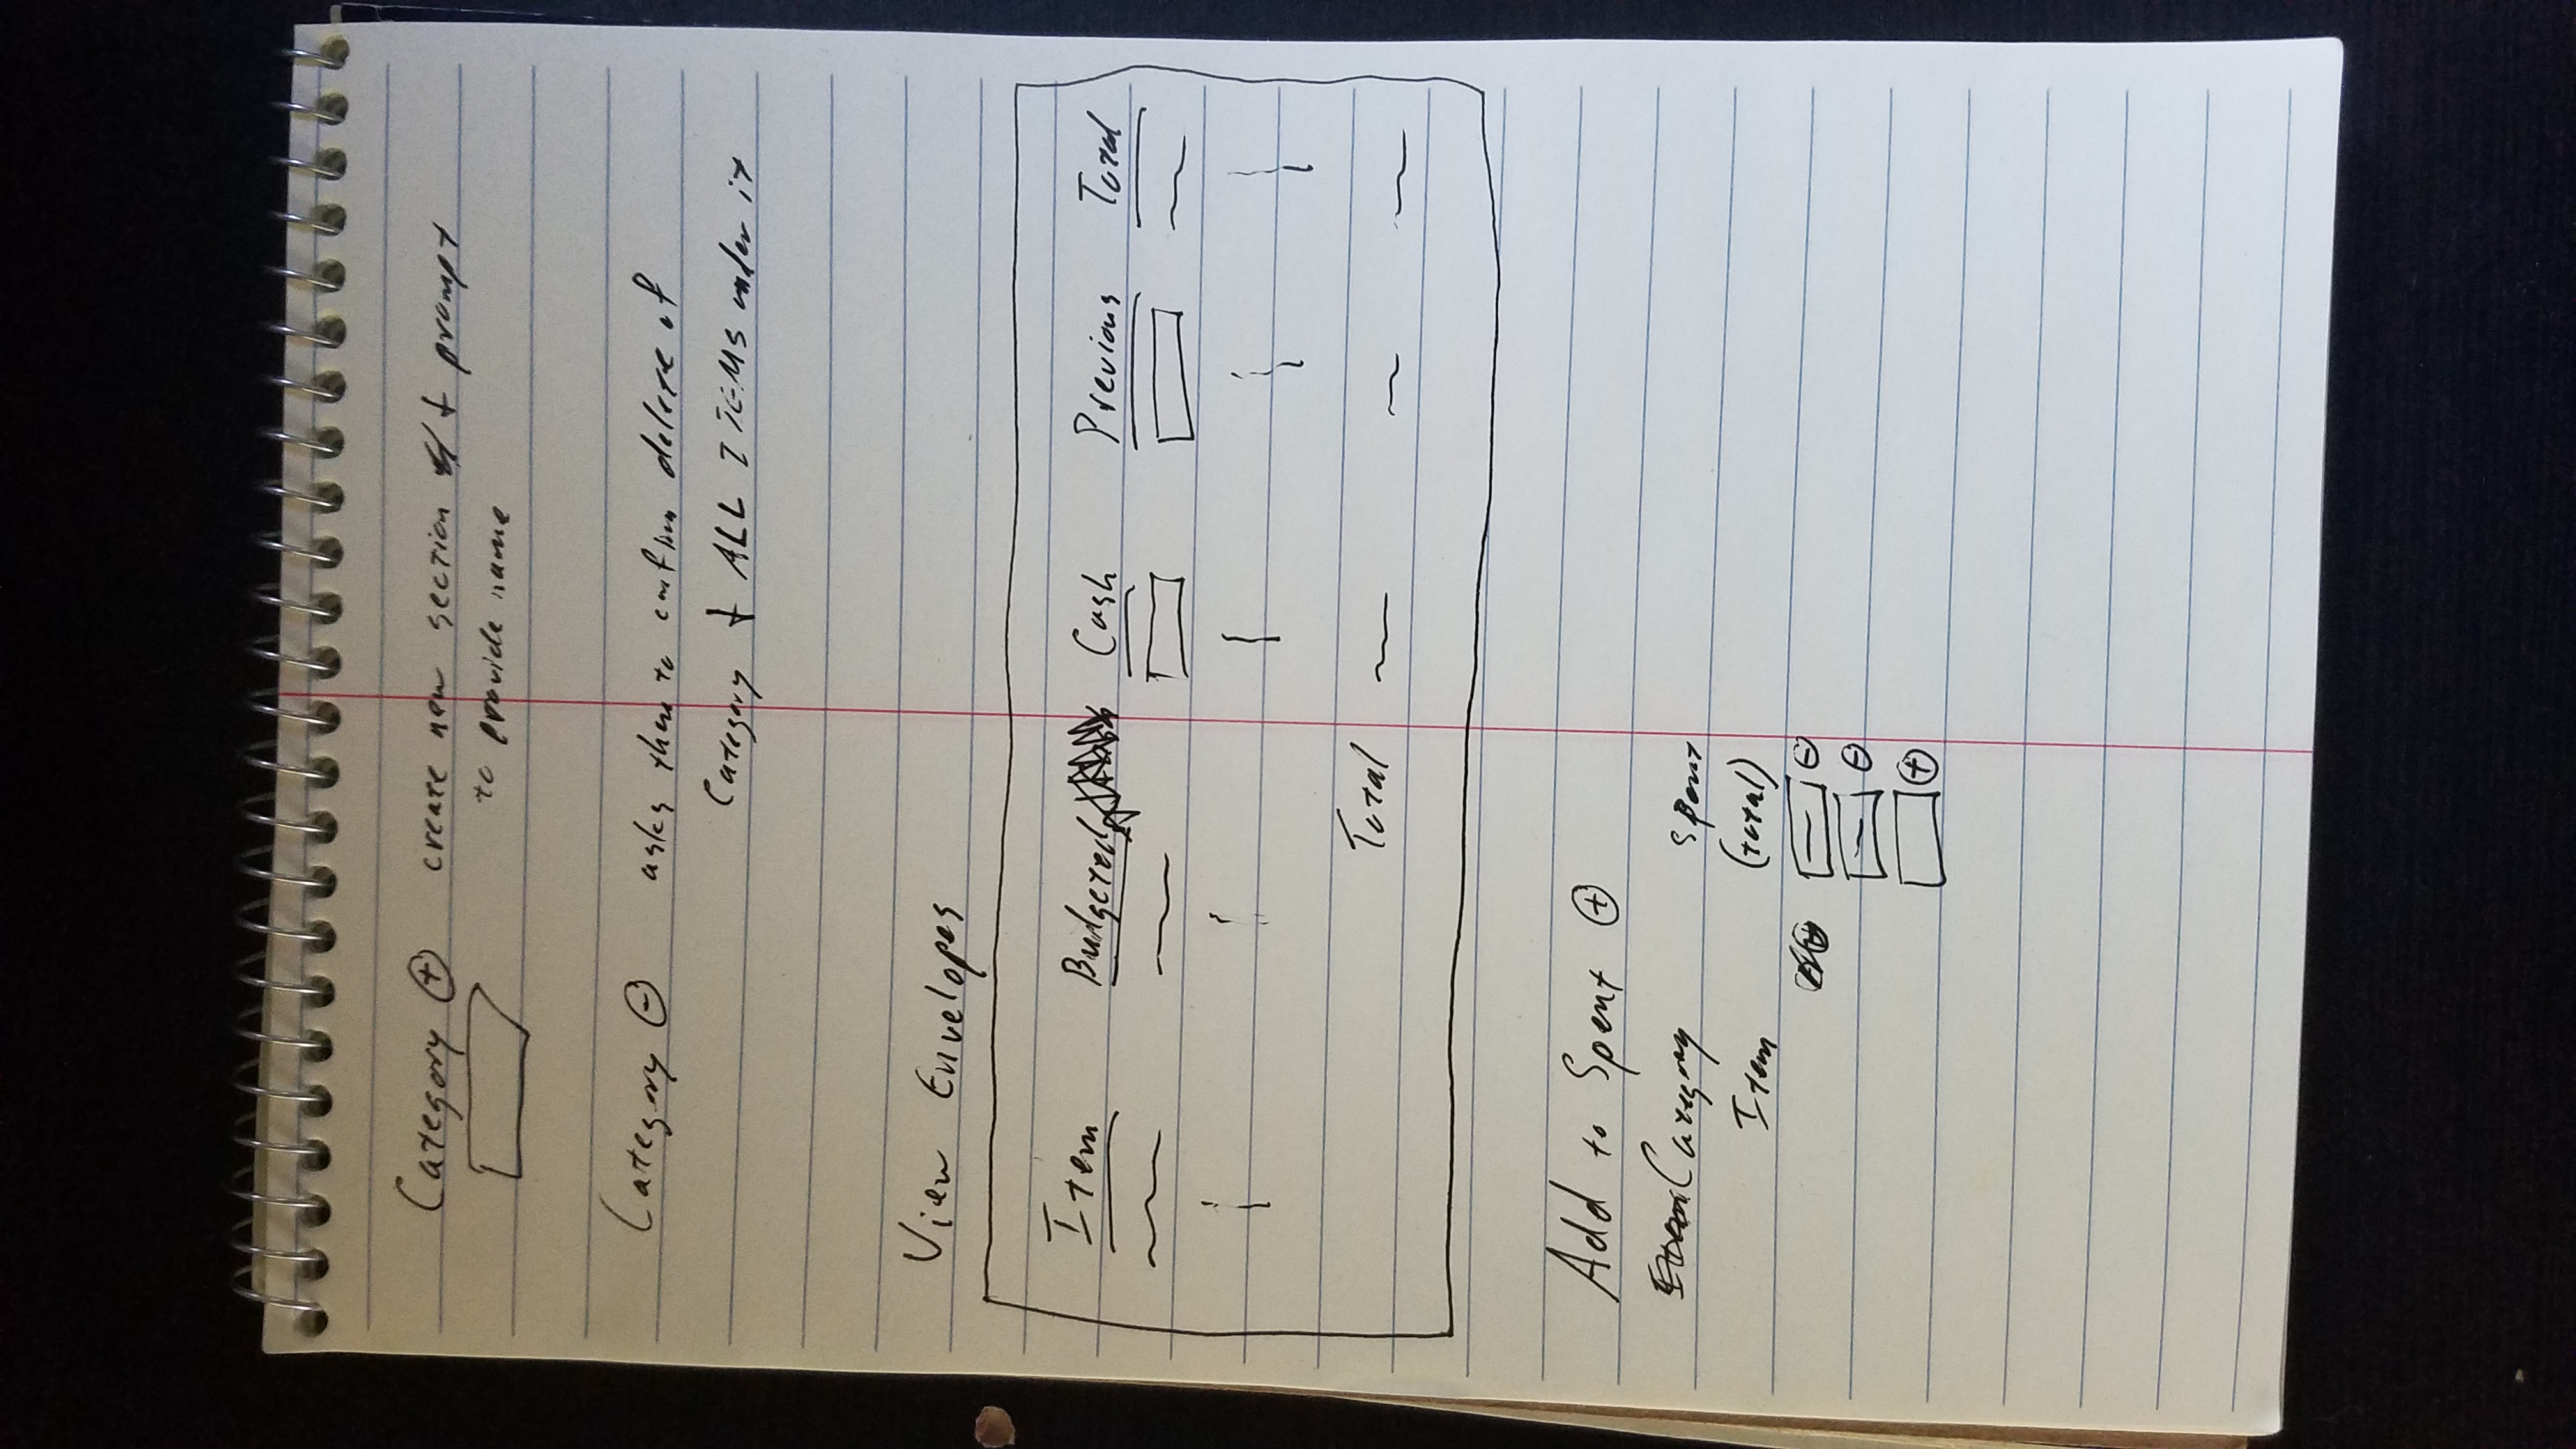 Category ⊕ create new section + prompt
to provide name
Category ⊖ asks them to confirm delete of
Category + ALL ITEMS under it
View Envelopes
Item Budgeted Cash Previous Total
Total
Add to Spent ⊕
Category Spent
Item (total)
⊖
⊖
⊕